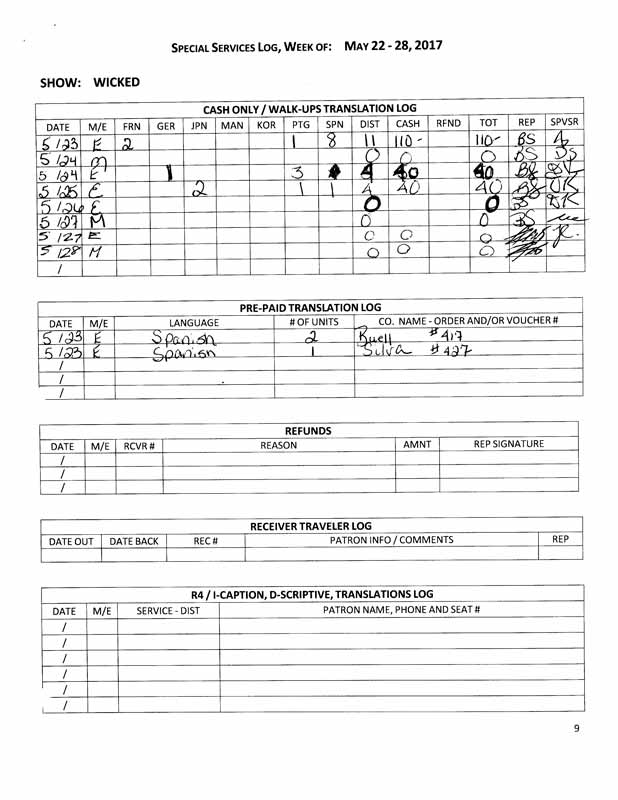 SPECIAL SERVICES LOG, WEEK OF: MAY 22 - 28, 2017
SHOW: WICKED
CASH ONLY / WALK-UPS TRANSLATION LOG
DATE M/E FRN GER JPN MAN KOR PTG SPN DIST CASH RFND TOT REP SPVSR
5 /23 E 2 1 8 11 110- 110- BS
5 /24 M 0 0 0 BS DS
5 /24 E 1 3 4 40 40
5 /25 E 2 1 1 4 40 40
5 /26 E 0 0
5 /27 M 0 0 0 BS
5 /27 E 0 0 0
5 /28 M 0 0 0
/
PRE-PAID TRANSLATION LOG
DATE M/E LANGUAGE # OF UNITS CO. NAME - ORDER AND/OR VOUCHER #
5 /23 E Spanish 2 Buell #417
5 /23 E Spanish 1 Silva #427
/
/
/
REFUNDS
DATE M/E RCVR # REASON AMNT REP SIGNATURE
/
/
/
RECEIVER TRAVELER LOG
DATE OUT DATE BACK REC # PATRON INFO / COMMENTS REP
R4 / I-CAPTION, D-SCRIPTIVE, TRANSLATIONS LOG
DATE M/E SERVICE - DIST PATRON NAME, PHONE AND SEAT #
/
/
/
/
/
/
9